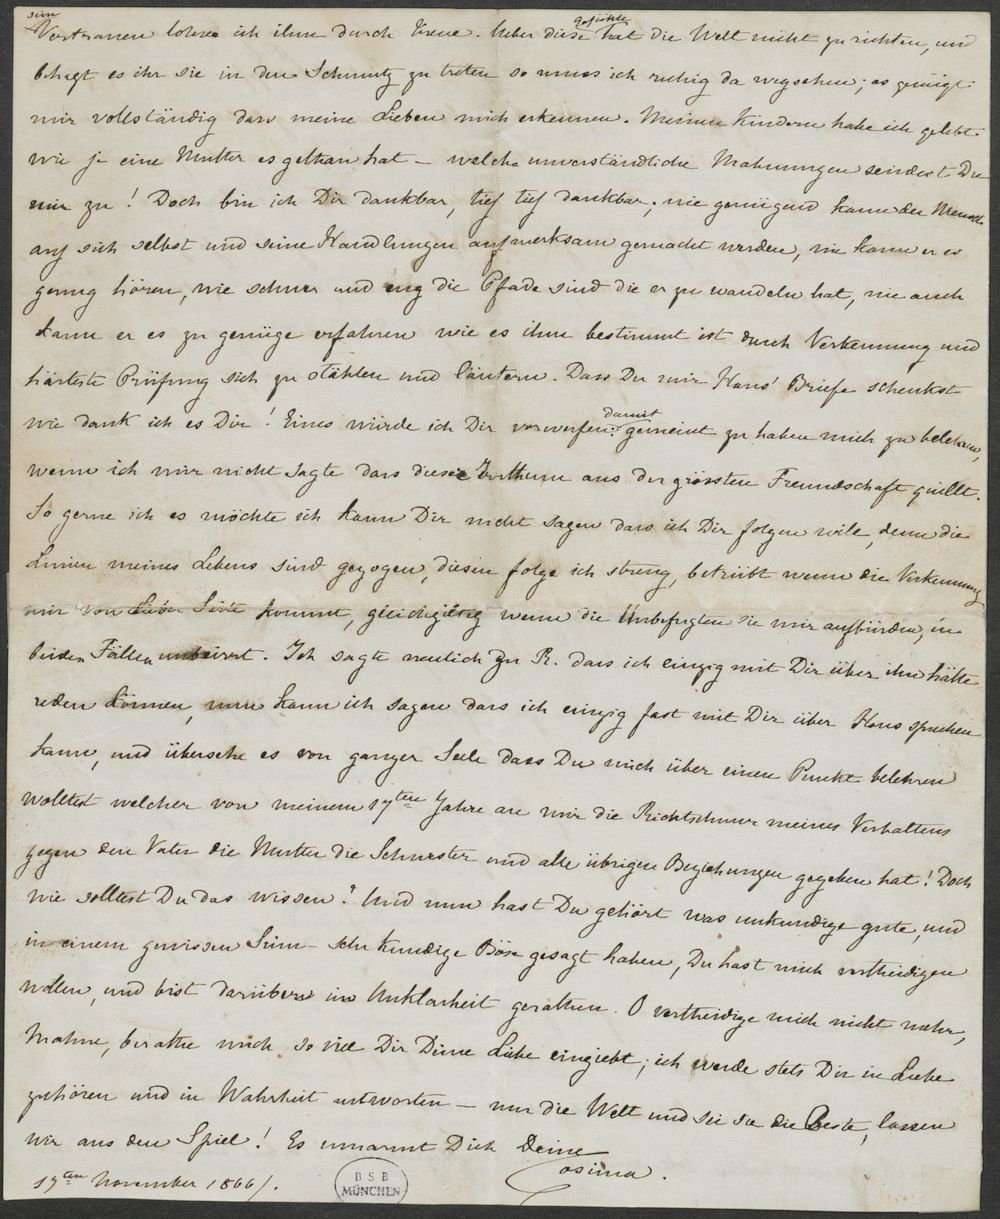 sein
Vertrauen lohne ich ihm durch Treue. Ueber diese Gefühle hat die Welt nicht zu richten, und
behagt es ihr sie in den Schmutz zu treten so muss ich ruhig da wegsehen; es genügt
mir vollständig dass meine Lieben mich erkennen. Meinen Kindern habe ich gelebt
wie je eine Mutter es gethan hat – welche unverständliche Mahnungen sendest Du
mir zu! Doch bin ich Dir dankbar, tief tief dankbar; nie genügend kann der Mensch
auf sich selbst und seine Handlungen aufmerksam gemacht werden, nie kann er es
genug hören, wie schwer und eng die Pfade sind die er zu wandeln hat, nie auch
kann er es zu genüge erfahren wie es ihm bestimmt ist durch Verkennung und
härteste Prüfung sich zu stählen und läutern. Dass Du mir Hans' Briefe schenkst
wie dank ich es Dir! Eines würde ich Dir vorwerfen: damit gemeint zu haben mich zu belehren,
wenn ich mir nicht sagte dass dieser Irrthum aus der grössten Freundschaft quillt.
So gerne ich es möchte ich kann Dir nicht sagen dass ich Dir folgen will, denn die
Linien meines Lebens sind gezogen, diesen folge ich streng, betrübt wenn die Verkennung
mir von Seite kommt, gleichgiltig wenn die Unbefugten sie mir aufbürden, in
beiden Fällen unbeirrt. Ich sagte neulich zu R. dass ich einzig mit Dir über ihn hätte
reden können, nun kann ich sagen dass ich einzig fast mit Dir über Hans sprechen
kann, und übersehe es von ganzer Seele dass Du mich über einen Punkt belehren
wolltest welcher von meinem 17ten Jahre an mir die Richtschnur meines Verhaltens
gegen den Vater die Mutter die Schwester und alle übrigen Beziehungen gegeben hat! Doch
wie solltest Du das wissen? Und nun hast Du gehört was unkundige gute, und
in einem gewissen Sinn – sehr kundige Böse gesagt haben, Du hast mich vertheidigen
wollen, und bist darüber in Unklarheit gerathen. O vertheidige mich nicht mehr,
Mahne, berathe mich so viel Dir Deine Liebe eingiebt; ich werde stets Dir in Liebe
zuhören und in Wahrheit antworten – nur die Welt und sei sie die Beste, lassen
wir aus dem Spiel! Es umarmt Dich Deine
Cosima.
17ten November 1866/.
BSB
MÜNCHEN